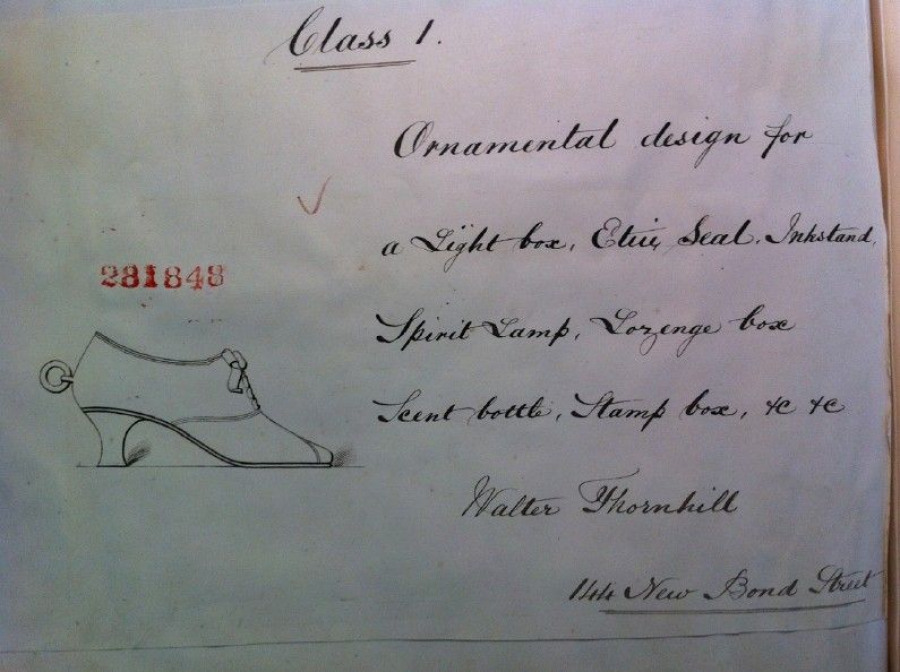 Class 1.
Ornamental design for
a Light box, Etui, Seal, Inkstand,
281848
Spirit Lamp, Lozenge box
Scent bottle, Stamp box, &c &c
Walter Thornhill
144 New Bond Street